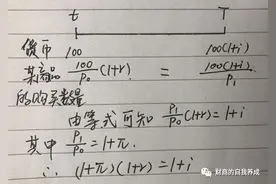 t T
货币 100 100(1+i)
某商品 100/P₀ (1+r) = 100(1+i)/P₁
的购买数量
由等式可知 P₁/P₀ (1+r) = 1+i
其中 P₁/P₀ = 1+π.
∴ (1+π)(1+r) = 1+i
财商的自我养成